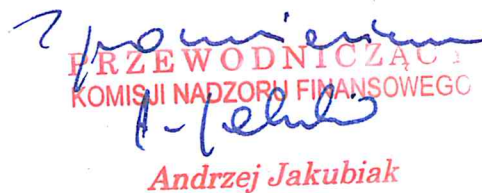 Z poważaniem
PRZEWODNICZĄCY
KOMISJI NADZORU FINANSOWEGO
A. Jakubiak
Andrzej Jakubiak